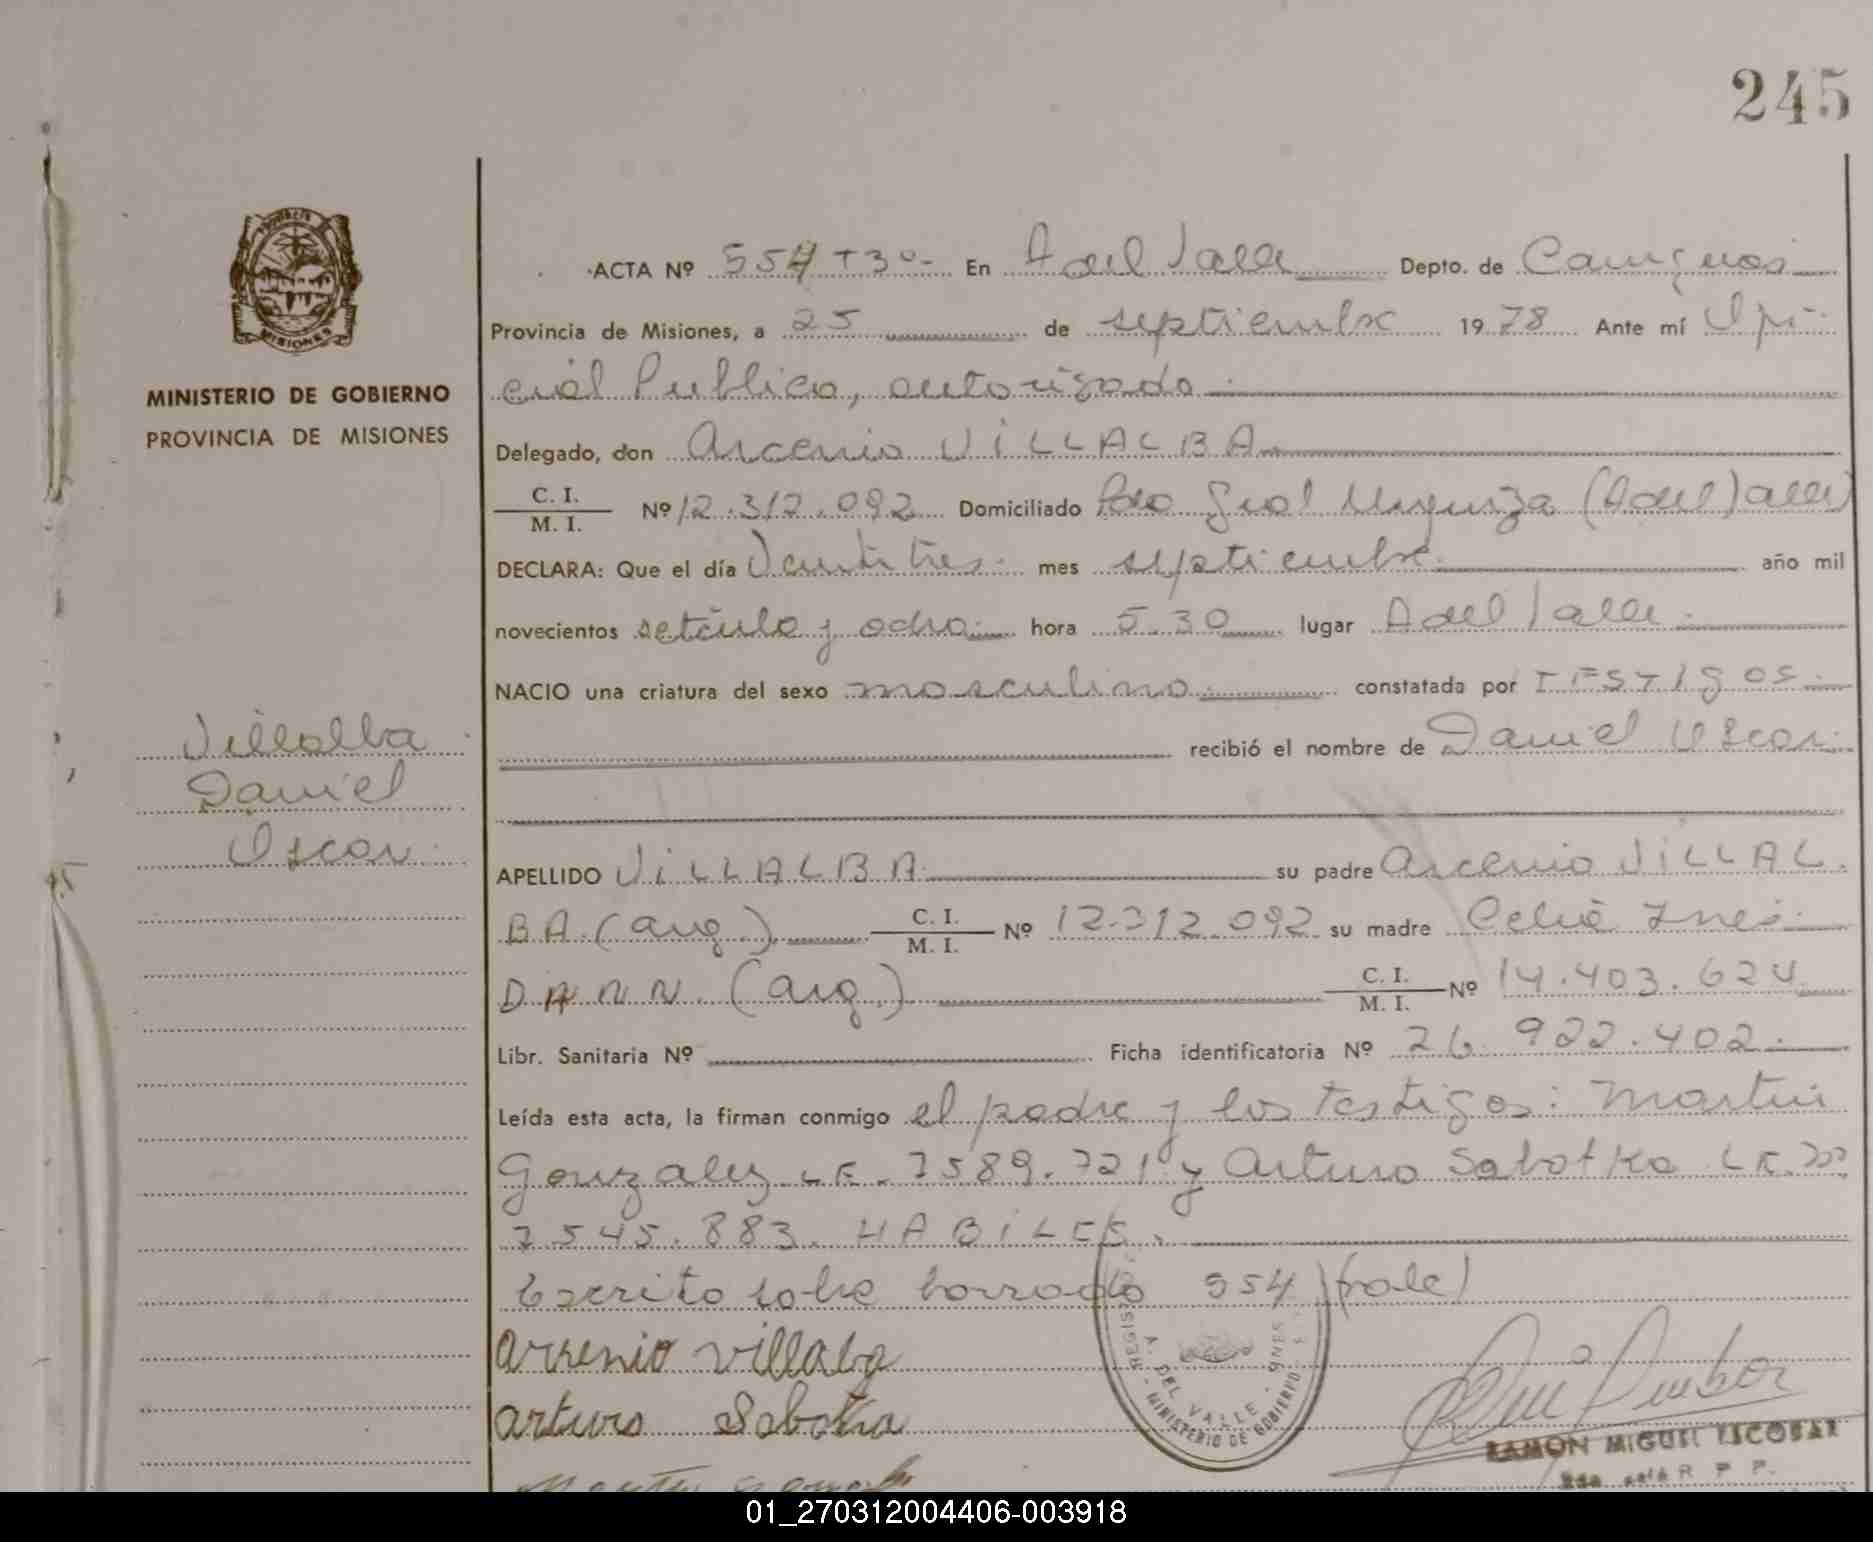 245
MINISTERIO DE GOBIERNO
PROVINCIA DE MISIONES
Villalba
Daniel
Oscar
ACTA Nº 554 Tº 3º En A del Valle Depto. de Cainguás
Provincia de Misiones, a 25 de septiembre 1978 Ante mí Ofi-
cial Publico, autorizado
Delegado, don Arcenio VILLALBA
C. I.
M. I. Nº 12.312.092 Domiciliado Pdo Gral Urquiza (A del Valle)
DECLARA: Que el día Veintitres mes septiembre año mil
novecientos setenta y ocho hora 5.30 lugar A del Valle
NACIO una criatura del sexo masculino constatada por TESTIgos
recibió el nombre de Daniel Oscar
APELLIDO VILLALBA su padre Arcenio VILLAL
BA (arg.) C. I. M. I. Nº 12.312.092 su madre Celia Ines
DANN. (arg.) C. I. M. I. Nº 14.403.624
Libr. Sanitaria Nº Ficha identificatoria Nº 26.922.402.
Leída esta acta, la firman conmigo el padre y los testigos: Martin
Gonzalez L.E. 7589.721 y Arturo Sabotka L.E.
7545.883. HABILES.
Escrito sobre borrado 554 (vale)
arsenio villalba
arturo Sabotka
A. DEL VALLE - MNES
MINISTERIO DE GOBIERNO
RAMON MIGUEL ESCOBAR
01_270312004406-003918